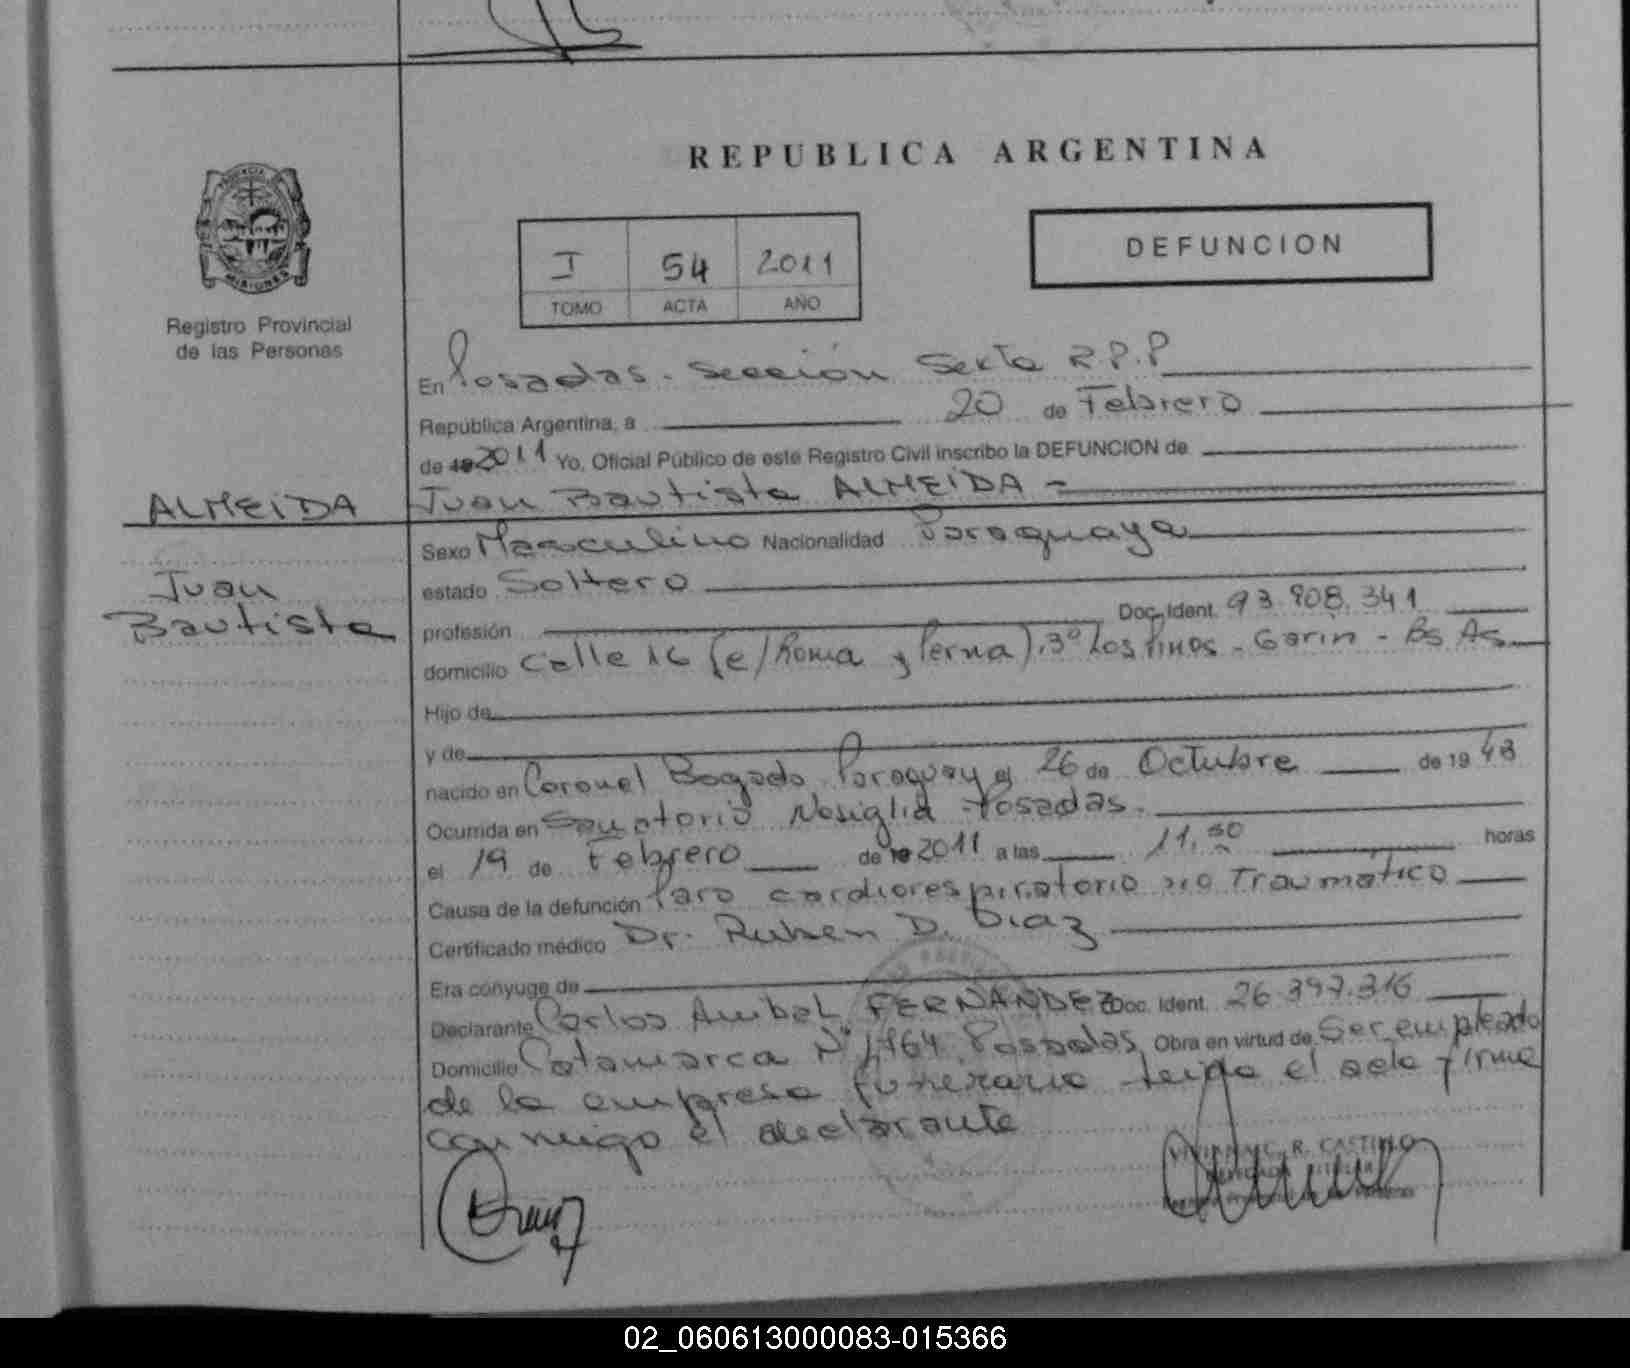 REPUBLICA ARGENTINA
I 54 2011
TOMO ACTA AÑO
DEFUNCION
Registro Provincial
de las Personas
En Posadas. Sección Sexta R.P.P
República Argentina, a 20 de Febrero
de 19 2011 Yo, Oficial Público de este Registro Civil inscribo la DEFUNCION de
ALMEIDA
Juan Bautista ALMEIDA -
Juan
Bautista
Sexo Masculino Nacionalidad Paraguaya
estado Soltero
profesión Doc. Ident. 93.908.341
domicilio Calle 16 (e/Roma y Perna). 3º Los Pinos - Garin - Bs As
Hijo de
y de
nacido en Coronel Bogado Paraguay el 26 de Octubre de 19 48
Ocurrida en Sanatorio Nosiglia Posadas.
el 19 de Febrero de 19 2011 a las 11,50 horas
Causa de la defunción Paro cardiorespiratorio no Traumático
Certificado médico Dr. Ruben D. Diaz
Era cónyuge de
Declarante Carlos Anibal FERNANDEZ Doc. Ident. 26.397.316
Domicilio Catamarca Nº 1764 Posadas Obra en virtud de Ser empleado
de la empresa funeraria leida el acta firma
conmigo el declarante
R. CASTILLO
02_060613000083-015366